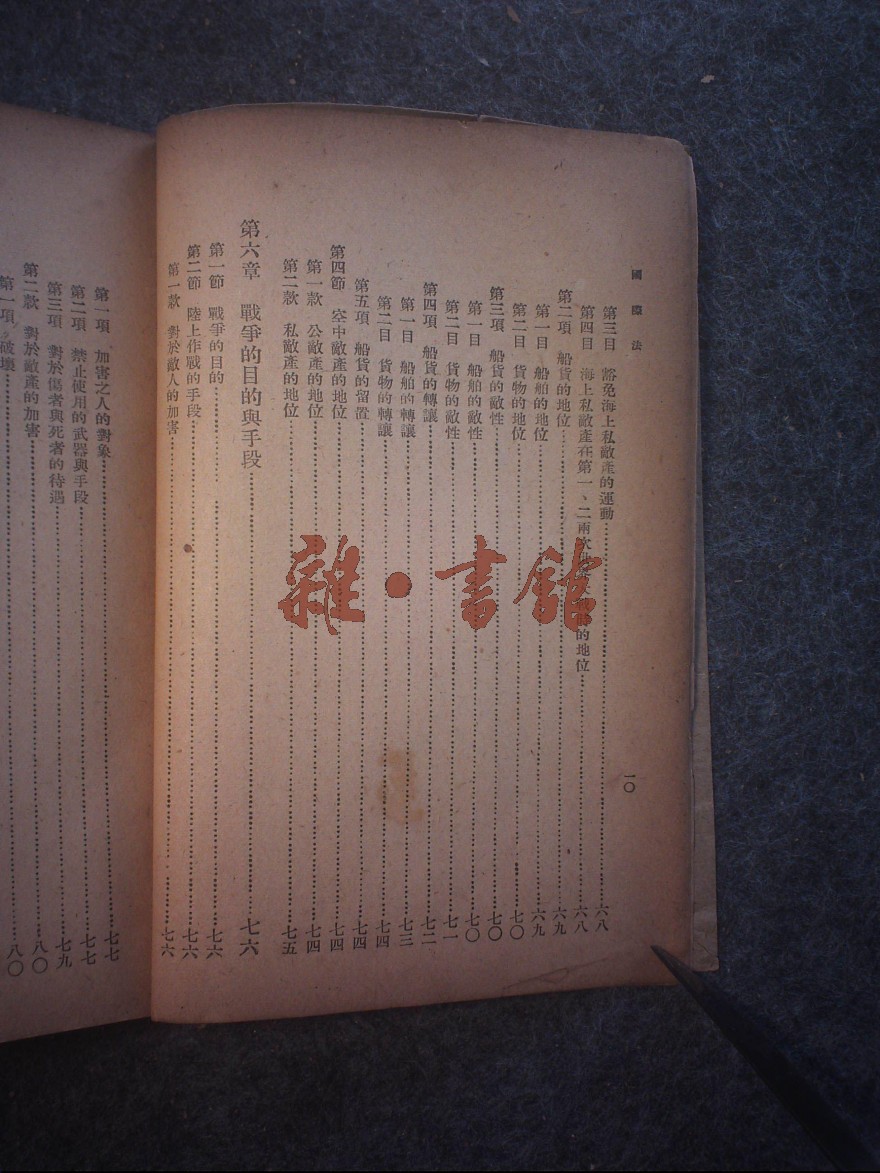 國際法
第三目 豁免海上私敵產的運動⋯⋯六八
第四目 海上私敵產在第一、二兩次 的地位⋯⋯六八
第二項 船貨的地位⋯⋯六九
第一目 船舶的地位⋯⋯六九
第二目 貨物的地位⋯⋯七〇
第三項 船貨的敵性⋯⋯七〇
第一目 船舶的敵性⋯⋯七〇
第二目 貨物的敵性⋯⋯七一
第四項 船貨的轉讓⋯⋯七二
第一目 船舶的轉讓⋯⋯七三
第二目 貨物的轉讓⋯⋯七四
第五項 船貨的留置⋯⋯七四
第四節 空中敵產的地位⋯⋯七四
第一款 公敵產的地位⋯⋯七四
第二款 私敵產的地位⋯⋯七五
第六章 戰爭的目的與手段⋯⋯七六
第一節 戰爭的目的⋯⋯七六
第二節 陸上作戰的手段⋯⋯七六
第一款 對於敵人的加害⋯⋯七六
一〇
第一項 加害之人的對象⋯⋯七七
第二項 禁止使用的武器與手段⋯⋯七七
第三項 對於傷者與死者的待遇⋯⋯七九
第二款 對於敵產的加害⋯⋯八〇
第一項 破壞⋯⋯八〇
雜·書館